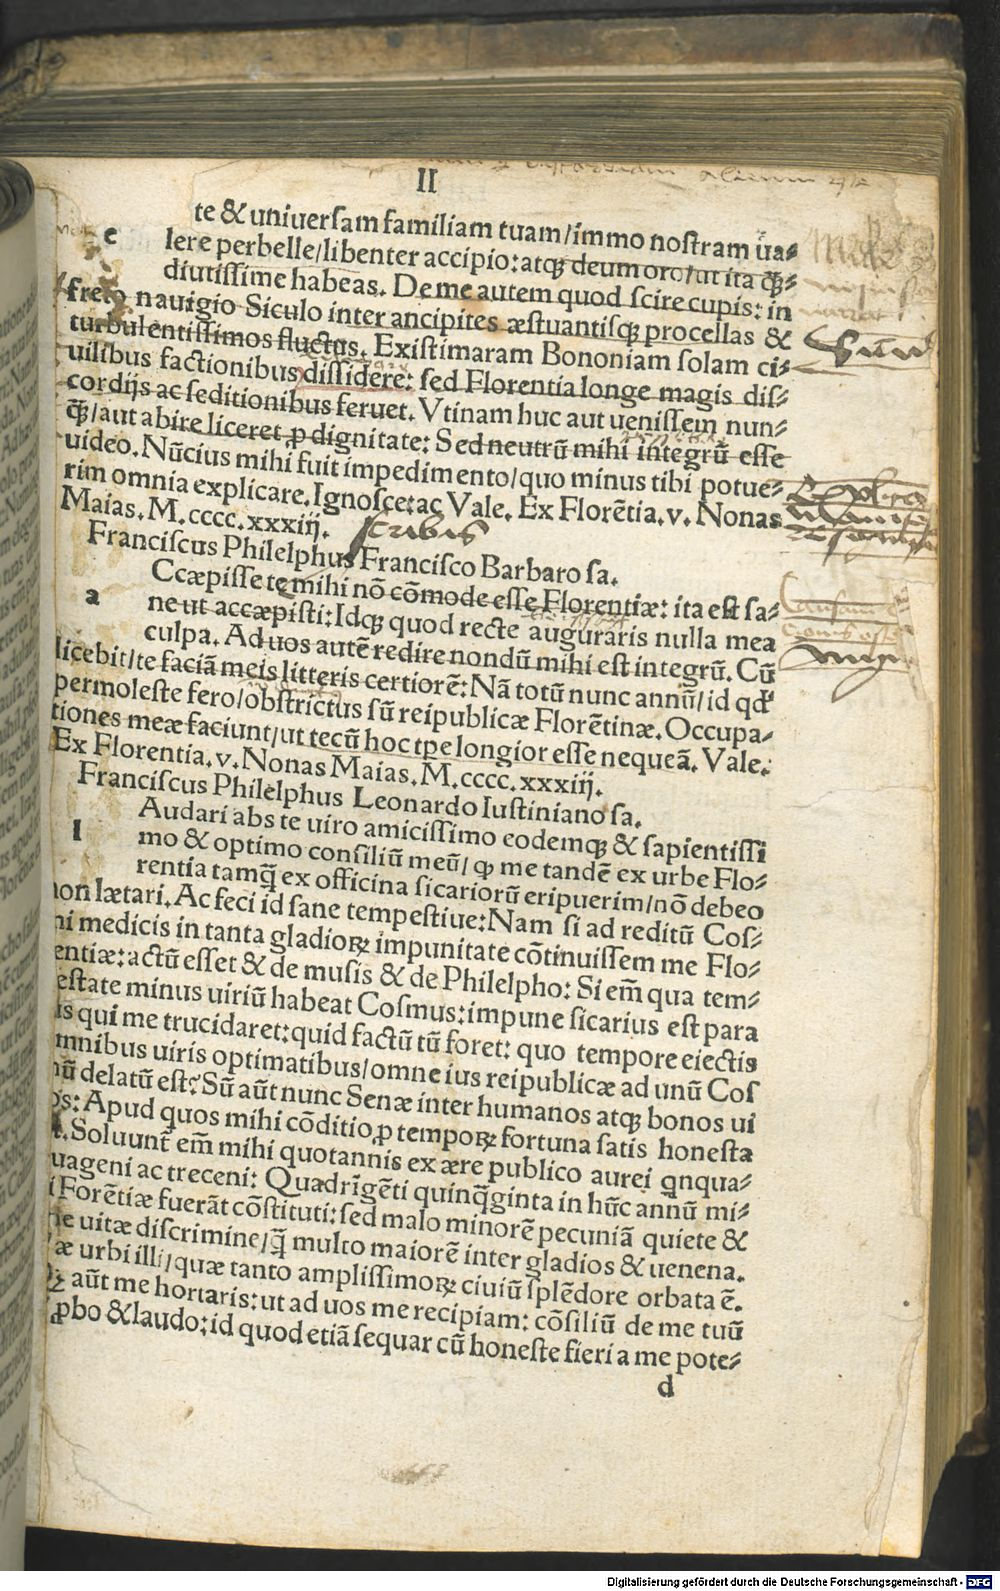 II
te & uniuerſam familiam tuam/immo noſtram ua⸗
e lere perbelle/libenter accipio:atqꝫ deum oro/ut ita ꝙ̃⸗
diutiſſime habeas. De me autem quod ſcire cupis: in
freto nauigio Siculo inter ancipites æſtuantiſqꝫ procellas &
turbulentiſſimos fluctus. Exiſtimaram Bononiam ſolam ci⸗
uilibus factionibus diſſidere: ſed Florentia longe magis diſ⸗
cordijs ac ſeditionibus feruet. Vtinam huc aut ueniſſem nun⸗
ꝙ̃/aut abire liceret ꝓ dignitate: Sed neutrũ mihi integrũ eſſe
uideo. Nũcius mihi fuit impedimento/quo minus tibi potue⸗
rim omnia explicare. Ignoſce:ac Vale. Ex Florẽtia.v. Nonas
Maias. M.cccc.xxxiij.
scribis
Franciſcus Philelphus Franciſco Barbaro ſa.
Ccæpiſſe te mihi nõ cõmode eſſe Florentiæ: ita eſt ſa⸗
a ne ut accæpiſti: Idqꝫ quod recte auguraris nulla mea
culpa. Ad uos autẽ redire nondũ mihi eſt integrũ. Cũ
licebit/te faciã meis litteris certiorẽ: Nã totũ nunc annũ/id qđ
permoleſte fero/obſtrictus ſũ reipublicæ Florẽtinæ. Occupa⸗
tiones meæ faciunt/ut tecũ hoc tꝑe longior eſſe nequeã. Vale.
Ex Florentia.v. Nonas Maias. M.cccc.xxxiij.
Franciſcus Philelphus Leonardo Iuſtiniano ſa.
Audari abs te uiro amiciſſimo eodemqꝫ & ſapientiſſi
l mo & optimo conſiliũ meũ/ ꝙ me tandẽ ex urbe Flo⸗
rentia tamq̃ ex officina ſicariorũ eripuerim/nõ debeo
non lætari. Ac feci id ſane tempeſtiue: Nam ſi ad reditũ Coſ⸗
mi medicis in tanta gladioꝝ impunitate cõtinuiſſem me Flo⸗
entiæ: actũ eſſet & de muſis & de Philelpho: Si em̃ qua tem⸗
eſtate minus uiriũ habeat Coſmus: impune ſicarius eſt para
us qui me trucidaret: quid factũ tũ foret: quo tempore eiectis
mnibus uiris optimatibus/omne ius reipublicæ ad unũ Coſ
nũ delatũ eſt? Sũ aũt nunc Senæ inter humanos atqꝫ bonos ui
os: Apud quos mihi cõditio ꝓ tempoꝝ fortuna ſatis honeſta
t. Soluunt̃ em̃ mihi quotannis ex ære publico aurei qnqua⸗
uageni ac treceni: Quadrĩgẽti quinq̃ginta in hũc annũ mi⸗
i Forẽtiæ fuerãt cõſtituti: ſed malo minorẽ pecuniã quiete &
ne uitæ diſcrimine/q̃ multo maiorẽ inter gladios & uenena.
æ urbi illi/quæ tanto ampliſſimoꝝ ciuiũ ſplẽdore orbata ẽ.
ꝝ aũt me hortaris: ut ad uos me recipiam: cõſiliũ de me tuũ
ꝓbo & laudo: id quod etiã ſequar cũ honeſte fieri a me pote⸗
d
Digitalisierung gefördert durch die Deutsche Forschungsgemeinschaft - DFG